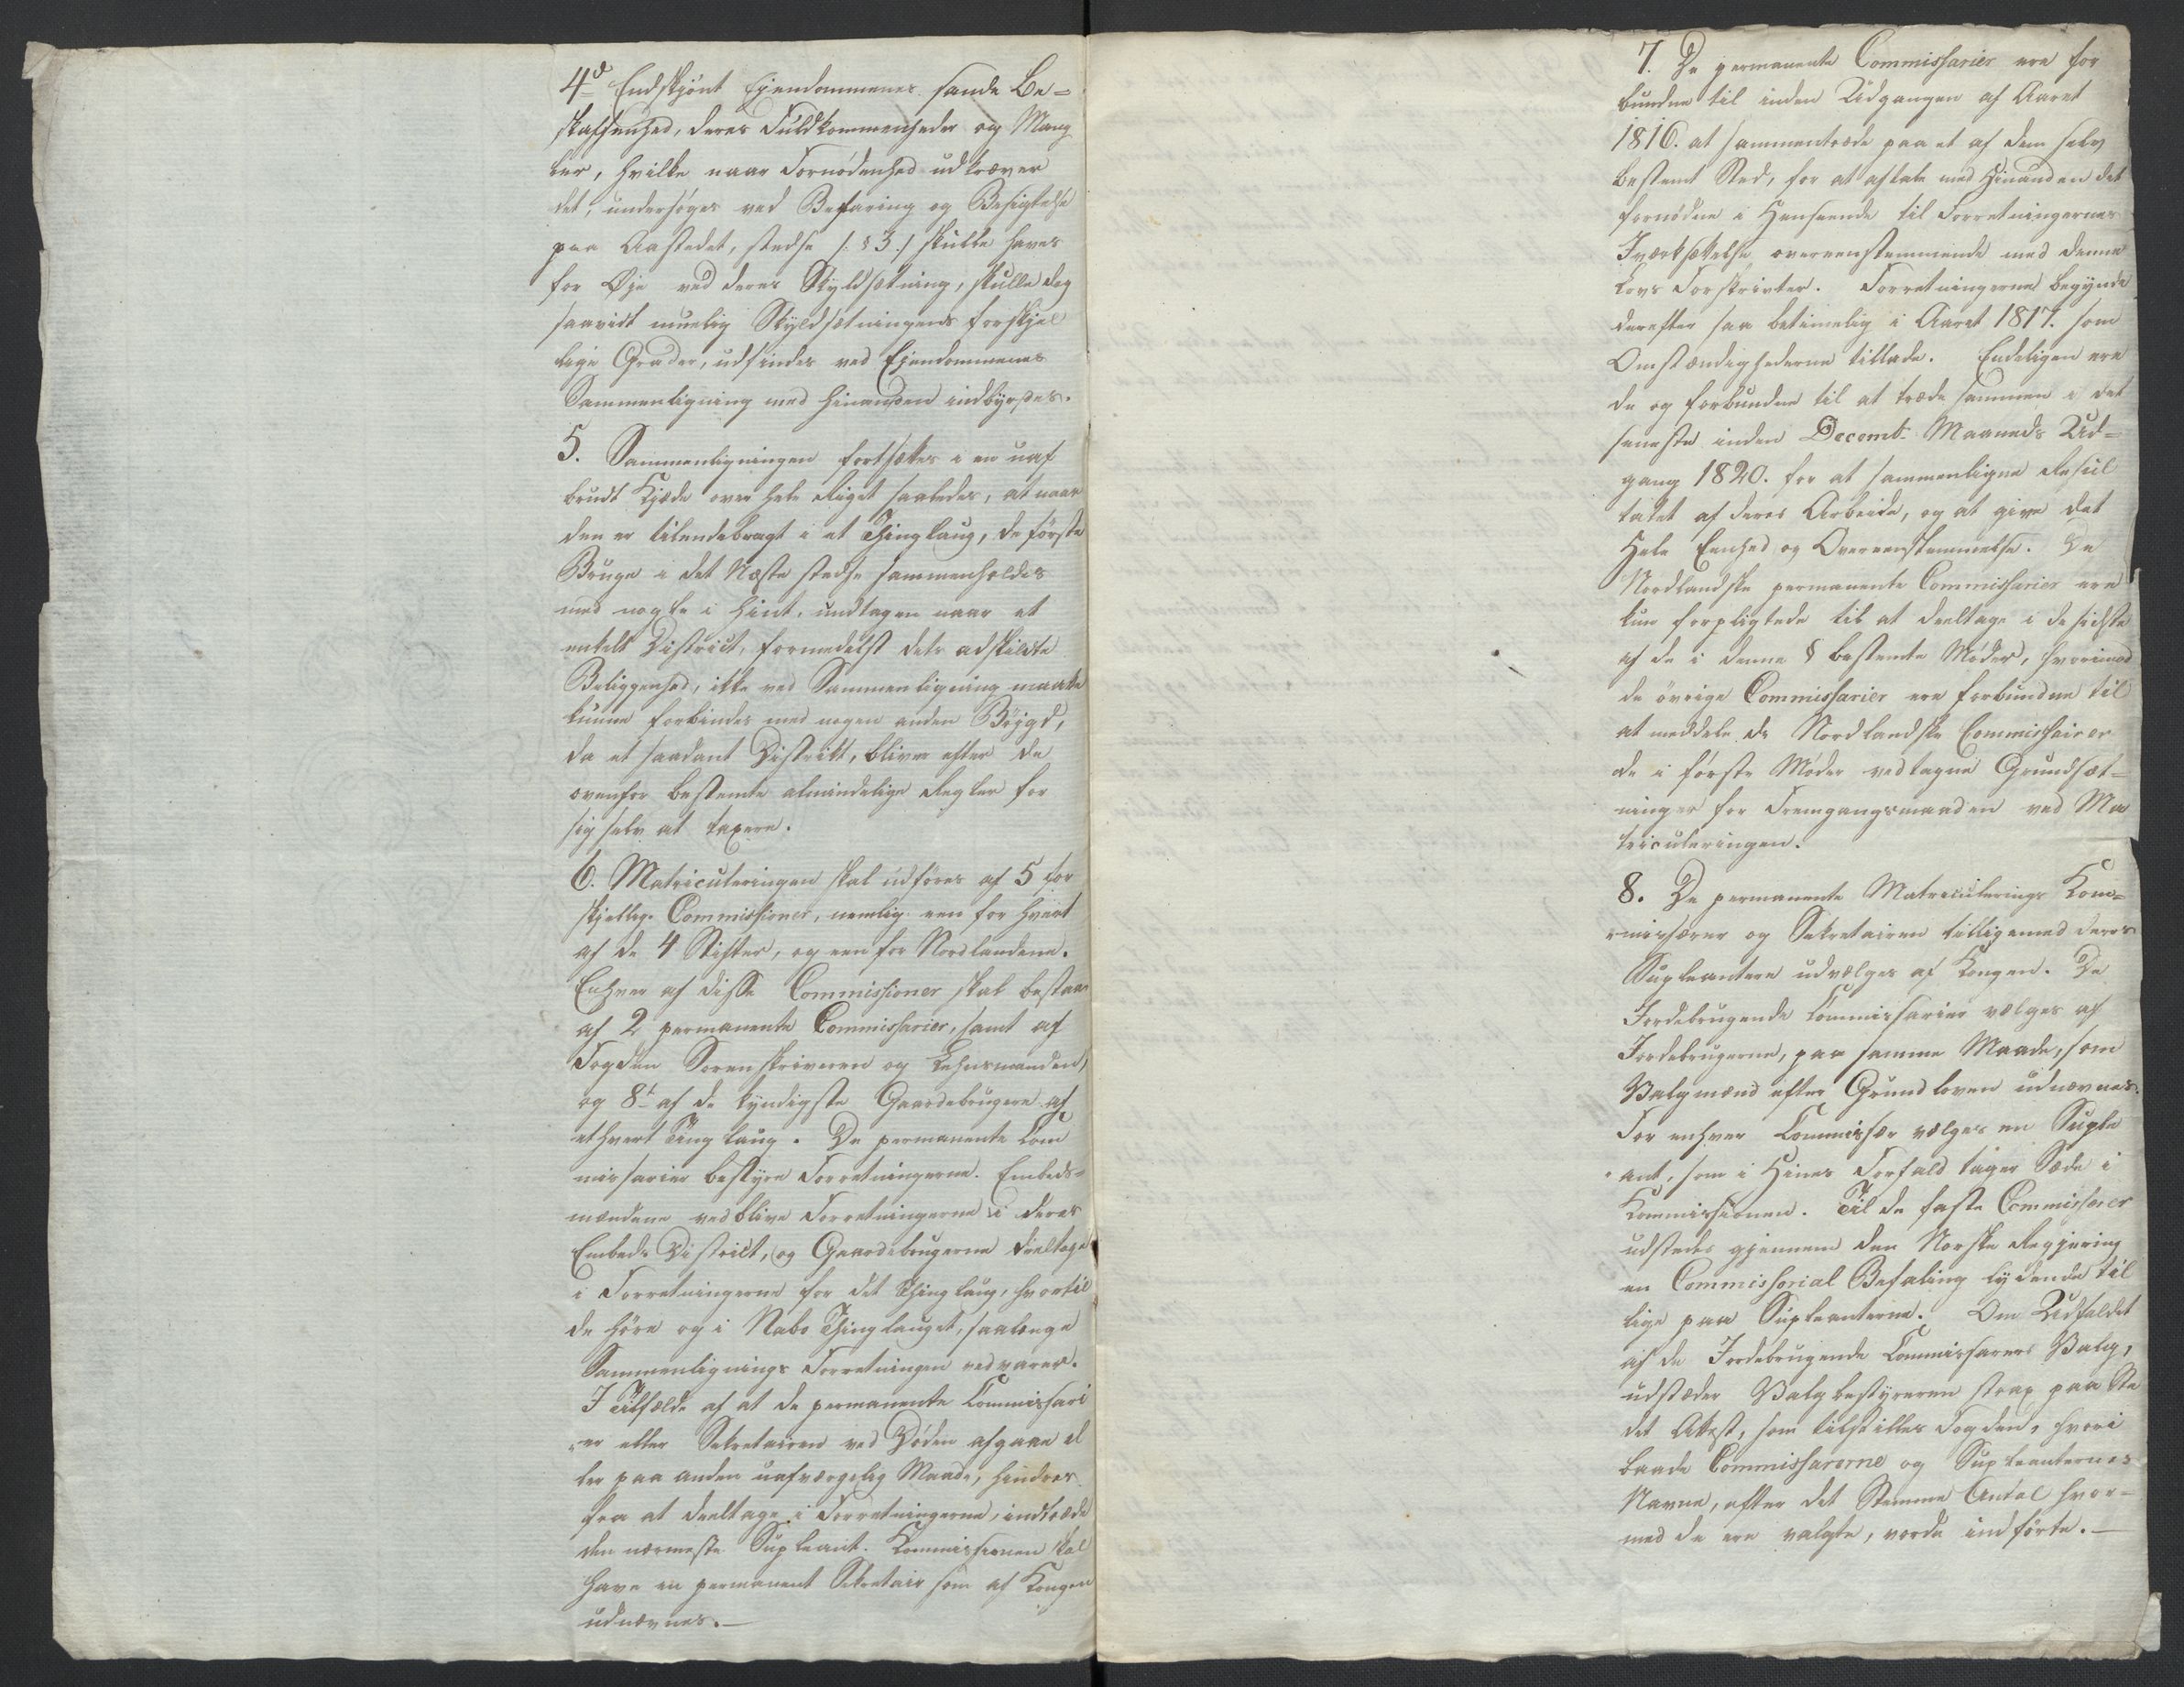 4d Endskjönt Ejendommenes sande Be-
skaffenhed, deres Fuldkommenheder og Mang
ler, hvilke naar Fornödenhed udkræver
det, undersøges ved Befaring og Besigtelse
paa Aastedet, stedse /: § 3 :/ skulle haves
for Øje ved deres Skyldsætning, skulle dog
saavidt muelig Skyldsætningens forskjel
lige Grader, udfindes ved Ejendommenes
Sammenligning med hinanden indbyrdes.
5. Sammenligningen fortsættes i en uaf
brudt Kjæde over hele Riget saaledes, at naar
den er tilendebragt i et Thinglaug, de förste
Bruge i det Næste stedse sammenholdes
med nogle i hint, undtagen naar et
enkelt District, formedelst dets adskildte
Beliggenhed, ikke ved Sammenligning maatte
kunne forbindes med nogen anden Böjgd,
da et saadant Distrikt, bliver efter de
ovenfor bestemte almindelige Regler for
sig selv at taxere.
6. Matriculeringen skal udföres af 5 for
skjellige Commissioner, nemlig een for hvert
af de 4 Stifter, og een for Nordlandene.
Enhver af disse Commissioner skal bestaae
af 2 permanente Commissarier, samt af
Fogden Sorenskriveren og Lehnsmanden,
og 8t af de kyndigste Gaardebrugere af
ethvert Tinglaug. De permanente Com
missarier bestyre Forretningerne. Embeds-
mændene vedblive Forretningerne i deres
Embeds District, og Gaardebrugerne deeltage
i Forretningerne for det Thinglaug, hvortil
de höre og i Nabo Thinglauget, saalænge
Sammenlignings Forretningen vedvarer.
I Tilfælde af at de permanente Commissari
er eller Sekretairen ved Döden afgaae el
ler paa anden uafværgelig Maade, hindres
fra at deeltage i Forretningerne, indtræde
den nærmeste Supleant. Kommissionen skal
have en permanent Sekretair som af Kongen
udnævnes.—
7. De permanente Commissarier ere for
bundne til inden Udgangen af Aaret
1816. at sammentræde paa et af dem selv
bestemt Sted, for at aftale med hinanden det
fornödne i Henseende til Forretningernes
Iværksættelse overeenstemmende med denne
Lovs Forskrivter. Forretningerne begynde
derefter saa betimelig i Aaret 1817. som
Omstændighederne tillade. Endeligen ere
de og forbundne til at træde sammen i det
seneste inden Decembr Maaneds Ud-
gang 1820. for at sammenligne Resul
tatet af deres Arbeide, og at give det
Hele Eenhed og Overeenstemmelse. De
Nordlandske permanente Commissarier ere
kun forpligtede til at deeltage i de sidste
af de i denne § bestemte Møder, hvorimod
de övrige Commissarier ere forbundne til
at meddele de Nordlandske Commissairer
de i förste Møder vedtagne Grundsæt-
ninger for Fremgangsmaaden ved Ma
triculeringen.
8. De permanente Matriculerings Kom-
missærer og Sekretairen tilligemed deres
Supleantere udvælges af Kongen. De
Jordebrugende Commissarier vælges af
Jordebrugerne, paa samme Maade, som
Valgmænd efter Grundloven udnævnes.
For enhver Commissær vælges en Suple
ant, som i Hines Forfald tager Sæde i
Kommissionen. Til de faste Commissærer
udstedes gjennem den Norske Regjering
en Commissorial Befaling lydende til
lige paa Supleanterne. Om Udfaldet
af de Jordebrugende Commissærers Valg,
udstæder Valgbestyreren strax paa Ste
det Attest, som tilstilles Fogden, hvori
baade Commissærerne og Supleanternes
Navne, efter det Stemme Antal hvor-
med de ere valgte, vorde indförte.—